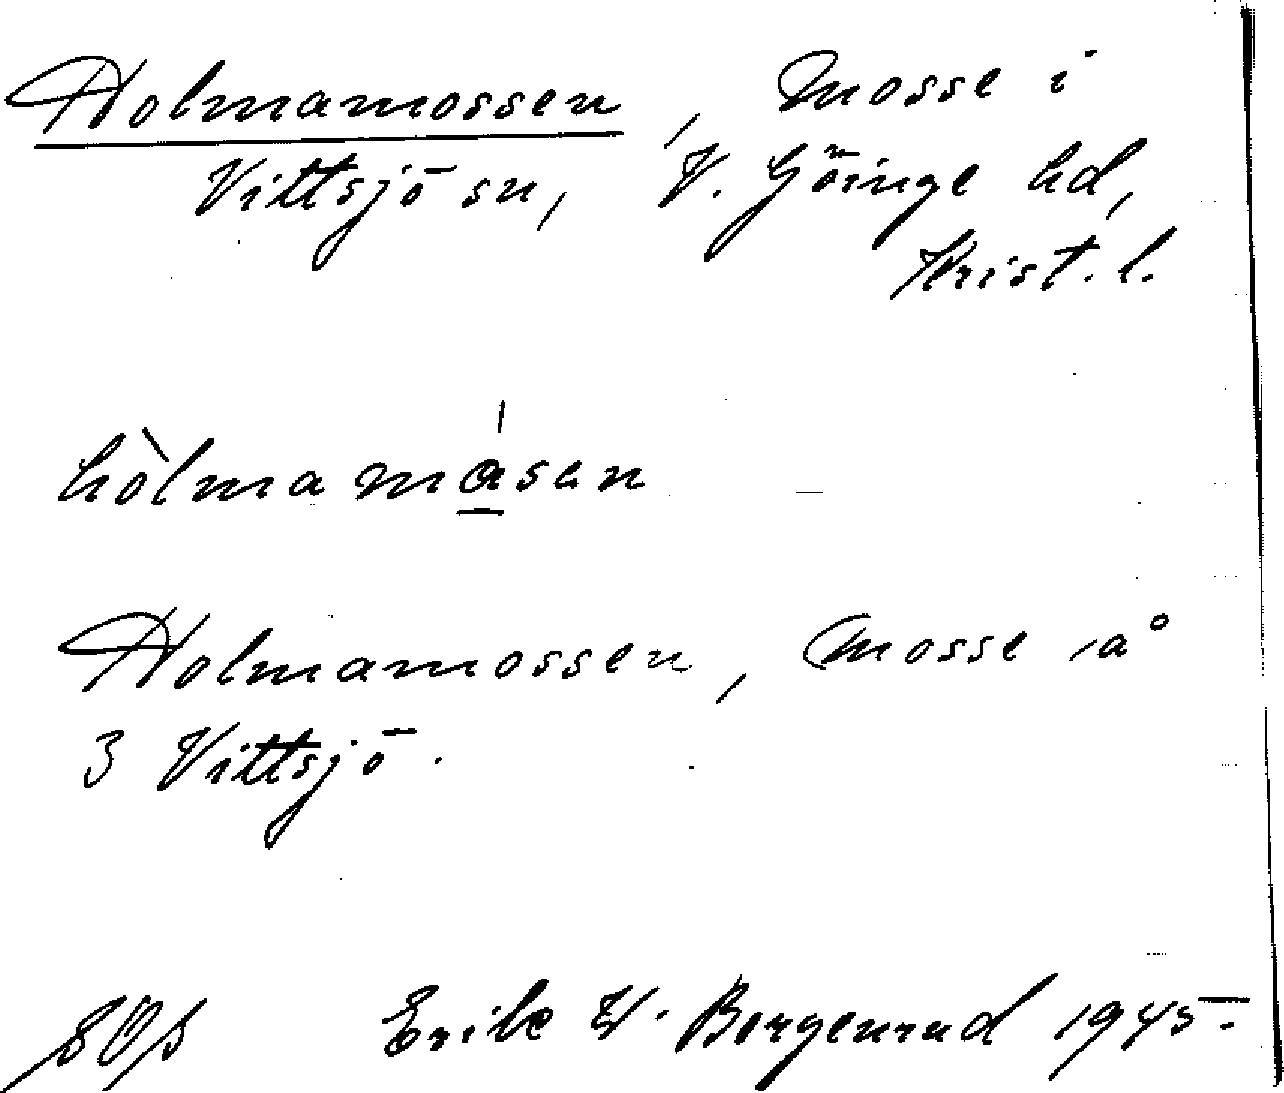 Holmamossen, mosse i
Vittsjö sn, V. Göinge hd,
Krist. l.
hòlmamásen
Holmamossen, mosse å
3 Vittsjö.
Erik W. Borgenrud 1945.